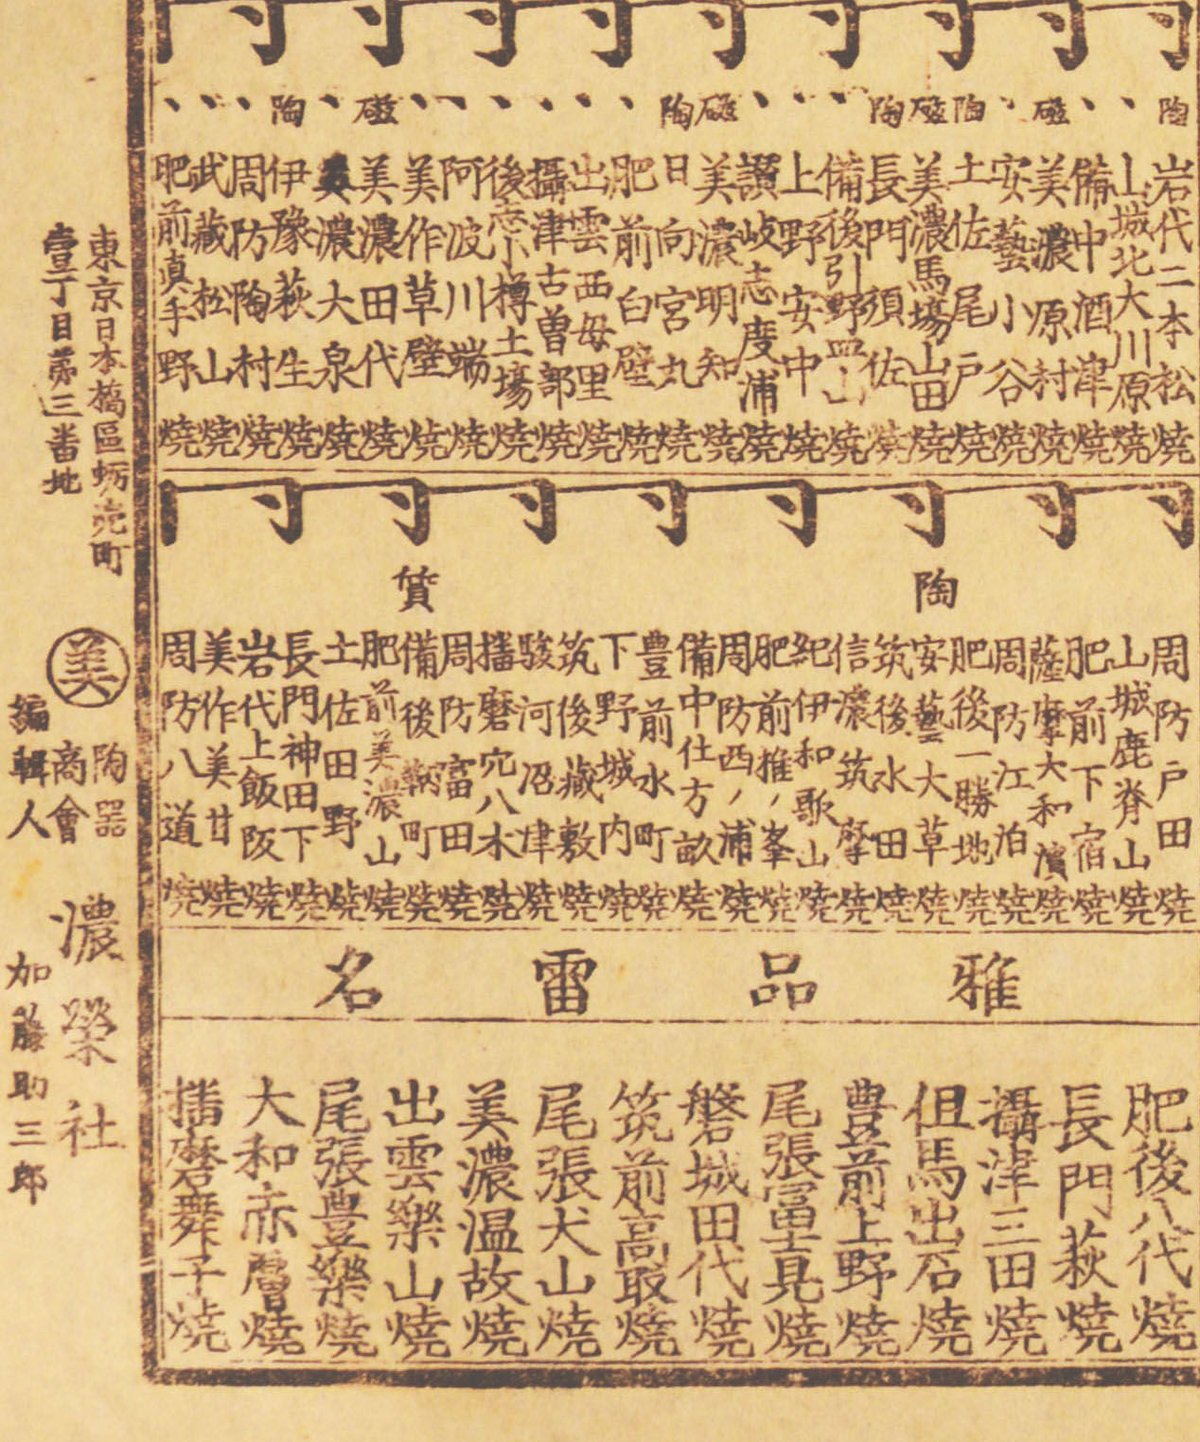 陶
岩代二本松燒
山城北大川原燒
備中酒津燒
磁
美濃原村燒
安藝小谷燒
陶
土佐尾戸燒
磁
美濃馬場山田燒
陶
長門須佐燒
備後引野皿山燒
上野安中燒
讃岐志度浦燒
磁
美濃明知燒
陶
日向宮丸燒
肥前白壁燒
出雲西母里燒
攝津古曽部燒
後志小樽土場燒
阿波川端燒
美作草壁燒
磁
美濃田代燒
美濃大泉燒
陶
伊豫萩生燒
周防陶村燒
武藏松山燒
肥前真手野燒
陶質
周防戸田燒
山城鹿脊山燒
肥前下宿燒
薩摩大和濱燒
周防江泊燒
肥後一勝地燒
安藝大草燒
筑後水田燒
信濃筑摩燒
紀伊和歌山燒
肥前椎ノ峯燒
周防西ノ浦燒
備中仕方畝燒
豊前水町燒
下野城内燒
筑後藏敷燒
駿河沼津燒
播磨宍八木燒
周防富田燒
備後鞆町燒
肥前美濃山燒
土佐田野燒
長門神田下燒
岩代上飯阪燒
美作美甘燒
周防八道燒
雅品雷名
肥後八代燒
長門萩燒
攝津三田燒
但馬出石燒
豊前上野燒
尾張富里見燒
磐城田代燒
筑前高取燒
尾張犬山燒
美濃温故燒
出雲樂山燒
尾張豊樂燒
大和赤膚燒
播磨舞子燒
東京日本橋區蛎壳町
壹丁目第三番地
美
陶器
商會
濃榮社
編輯人
加藤助三郎